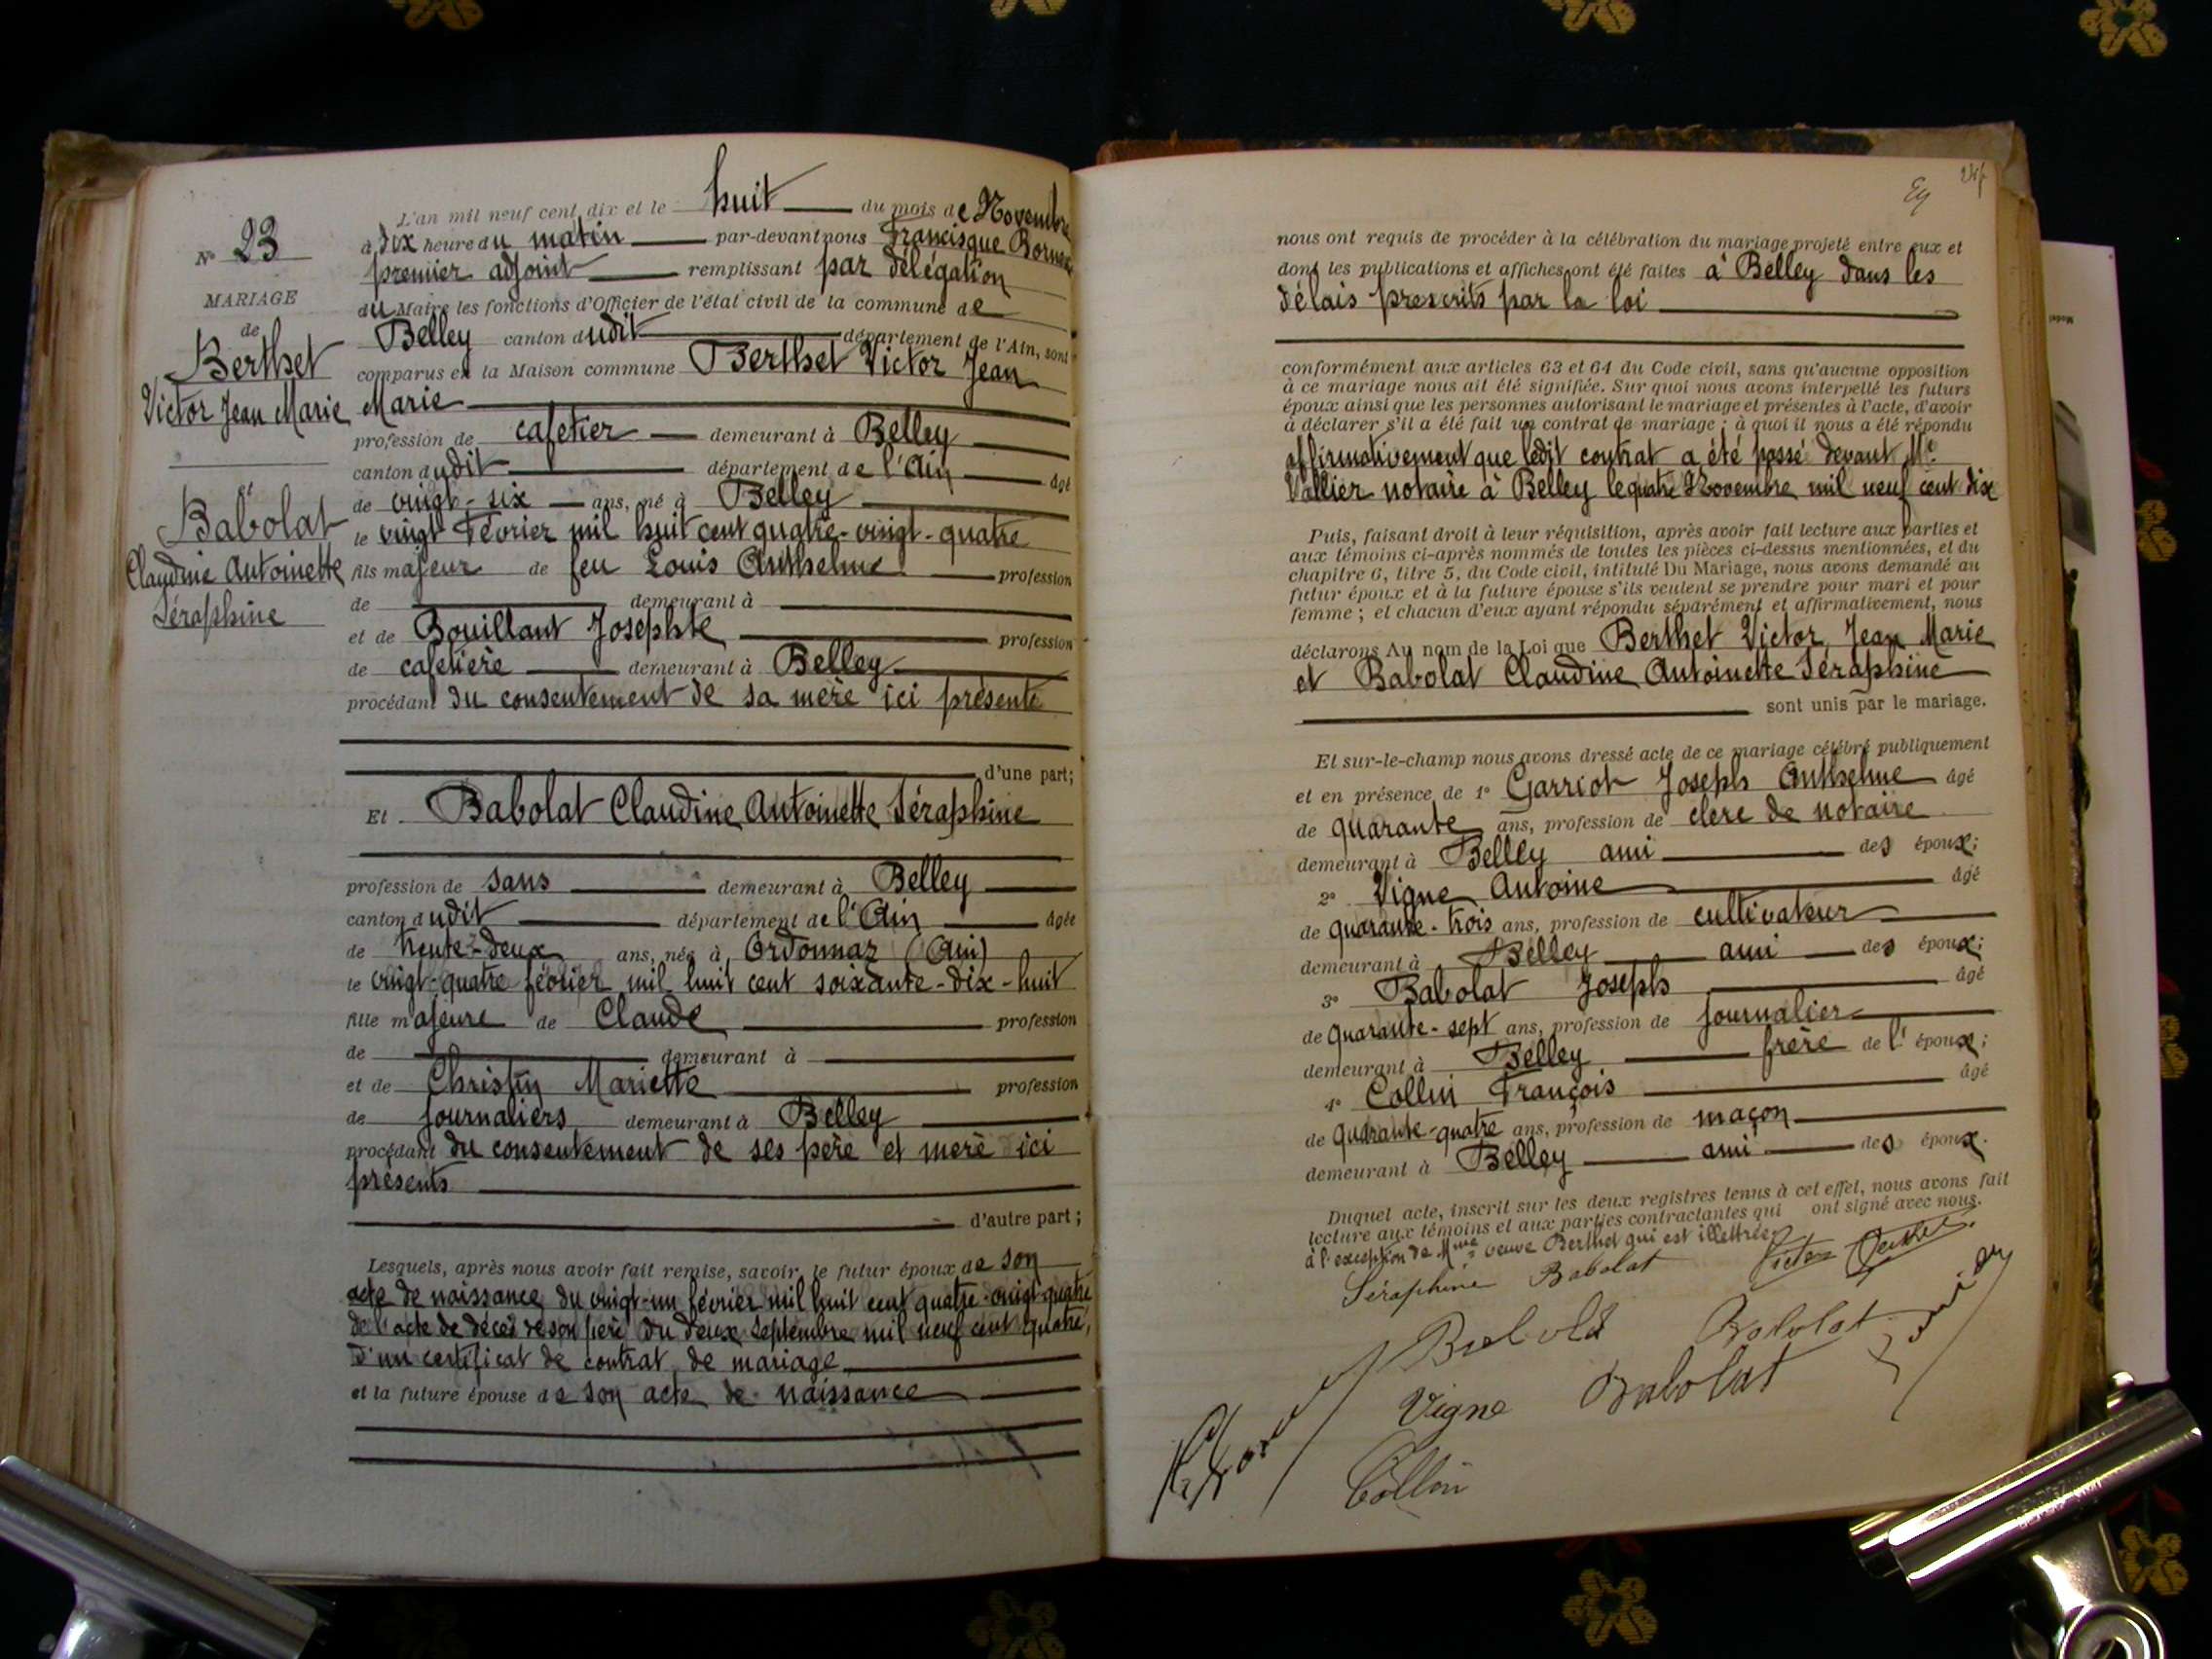 N° 23
MARIAGE
de
Berthet
Victor Jean Marie
et
Babolat
Claudine Antoinette
Séraphine
L'an mil neuf cent dix et le huit du mois de Novembre
à dix heure du matin par-devant nous Francisque
premier adjoint remplissant par délégation
du Maire les fonctions d'Officier de l'état civil de la commune de
Belley canton dudit département de l'Ain, sont
comparus en la Maison commune Berthet Victor Jean
Marie
profession de cafetier demeurant à Belley
canton dudit département de l'Ain âgé
de vingt-six ans, né à Belley
le vingt Février mil huit cent quatre-vingt-quatre
fils majeur de feu Louis Anthelme profession
de demeurant à
et de Bouillant Josephte profession
de cafetière demeurant à Belley
procédant du consentement de sa mère ici présente
d'une part;
Et Babolat Claudine Antoinette Séraphine
profession de sans demeurant à Belley
canton dudit département de l'Ain âgée
de trente-deux ans, née à Ordonnaz (Ain)
le vingt-quatre février mil huit cent soixante-dix-huit
fille majeure de Claude profession
de demeurant à
et de Christin Mariette profession
de journaliers demeurant à Belley
procédant du consentement de ses père et mère ici
présents
d'autre part;
Lesquels, après nous avoir fait remise, savoir, le futur époux de son
acte de naissance du vingt-un février mil huit cent quatre-vingt-quatre
de l'acte de décès de son père du deux Septembre mil neuf cent quatre,
d'un certificat de contrat de mariage
et la future épouse de son acte de naissance
nous ont requis de procéder à la célébration du mariage projeté entre eux et
dont les publications et affiches ont été faites à Belley dans les
délais prescrits par la loi
conformément aux articles 63 et 64 du Code civil, sans qu'aucune opposition
à ce mariage nous ait été signifiée. Sur quoi nous avons interpellé les futurs
époux ainsi que les personnes autorisant le mariage et présentes à l'acte, d'avoir
à déclarer s'il a été fait un contrat de mariage; à quoi il nous a été répondu
affirmativement que ledit contrat a été passé devant Me
Vallier notaire à Belley le quatre Novembre mil neuf cent dix
Puis, faisant droit à leur réquisition, après avoir fait lecture aux parties et
aux témoins ci-après nommés de toutes les pièces ci-dessus mentionnées, et du
chapitre 6, titre 5, du Code civil, intitulé Du Mariage, nous avons demandé au
futur époux et à la future épouse s'ils veulent se prendre pour mari et pour
femme; et chacun d'eux ayant répondu séparément et affirmativement, nous
déclarons Au nom de la Loi que Berthet Victor Jean Marie
et Babolat Claudine Antoinette Séraphine
sont unis par le mariage.
Et sur-le-champ nous avons dressé acte de ce mariage célébré publiquement
et en présence de 1° Garriot Joseph Anthelme âgé
de quarante ans, profession de clerc de notaire
demeurant à Belley ami des époux;
2° Vigne Antoine âgé
de quarante-trois ans, profession de cultivateur
demeurant à Belley ami des époux;
3° Babolat Joseph âgé
de quarante-sept ans, profession de journalier
demeurant à Belley frère de l'époux;
4° Collin François âgé
de quarante-quatre ans, profession de maçon
demeurant à Belley ami des époux.
Duquel acte, inscrit sur les deux registres tenus à cet effet, nous avons fait
lecture aux témoins et aux parties contractantes qui ont signé avec nous.
à l'exception de Mme veuve Berthet qui est illettrée
Séraphine Babolat Victor Berthet
Babolat
Vigne Babolat
Collin